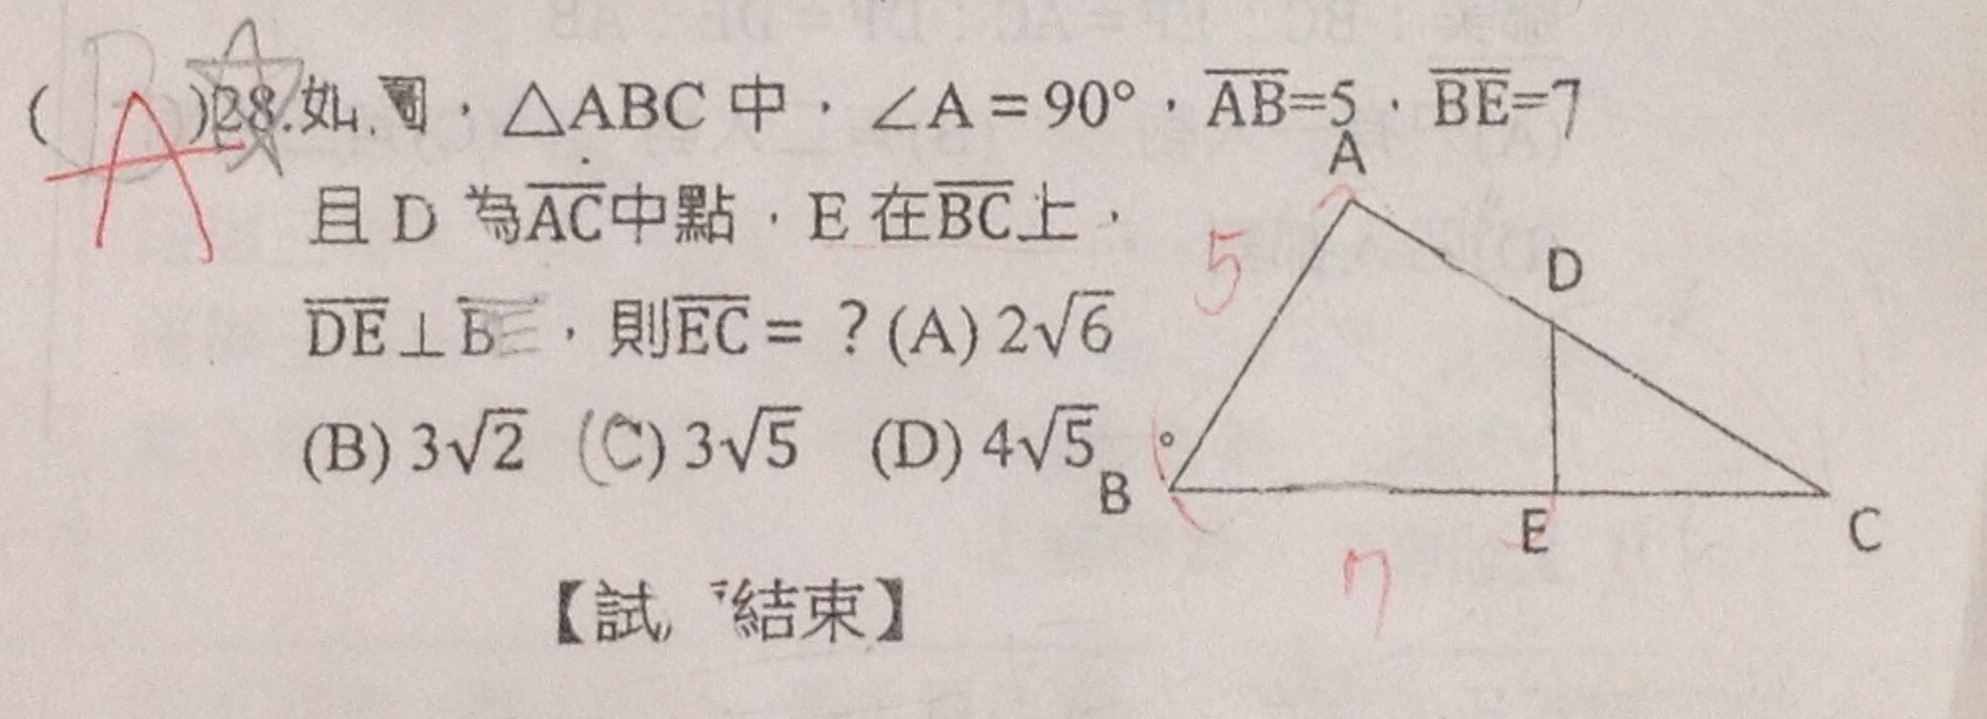 ( A )28.如圖，△ABC 中，∠A = 90°，AB=5，BE=7
且 D 為AC中點，E 在BC上，
DE⊥BE，則EC = ？(A) 2√6
(B) 3√2 (C) 3√5 (D) 4√5。
A
5
D
B
E
C
7
【試 結束】